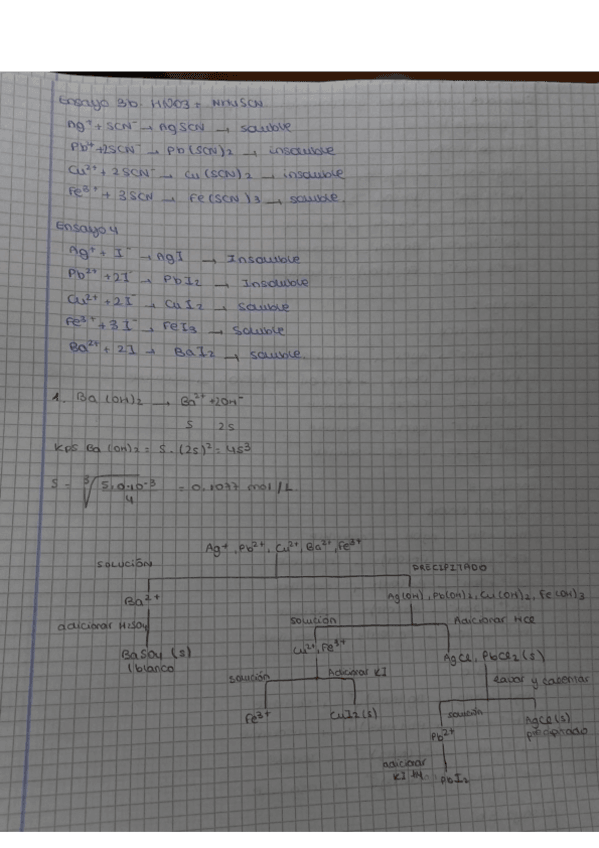 Ensayo 3b. HNO3 = NH4SCN
Ag⁺ + SCN⁻ → AgSCN → soluble
Pb⁺ +2SCN⁻ → Pb(SCN)2 → insoluble
Cu²⁺ + 2SCN⁻ → Cu(SCN)2 → insoluble
Fe³⁺ + 3SCN → Fe(SCN)3 → soluble.
Ensayo 4
Ag⁺ + I⁻ → AgI → Insoluble
Pb²⁺ +2I⁻ → PbI2 → Insoluble
Cu²⁺ +2I⁻ → CuI2 → soluble
Fe³⁺ +3I⁻ → FeI3 → soluble
Ba²⁺ + 2I → BaI2 → soluble.
1. Ba(OH)2 → Ba²⁺ +2OH⁻
S 2S
Kps Ba(OH)2 = S·(2S)² = 4S³
S = ∛(5,0·10⁻³/4) = 0.1077 mol/L
Ag⁺, Pb²⁺, Cu²⁺, Ba²⁺, Fe³⁺
solución PRECIPITADO
Ba²⁺ Ag(OH), Pb(OH)2, Cu(OH)2, Fe(OH)3
adicionar H2SO4 solución Adicionar HCl
BaSO4 (s) Cu²⁺, Fe³⁺ AgCl, PbCl2(s)
blanco
solución Adicionar KI lavar y calentar
Fe³⁺ CuI2(s) solución AgCl(s)
Pb²⁺ precipitado
adicionar
KI PbI2